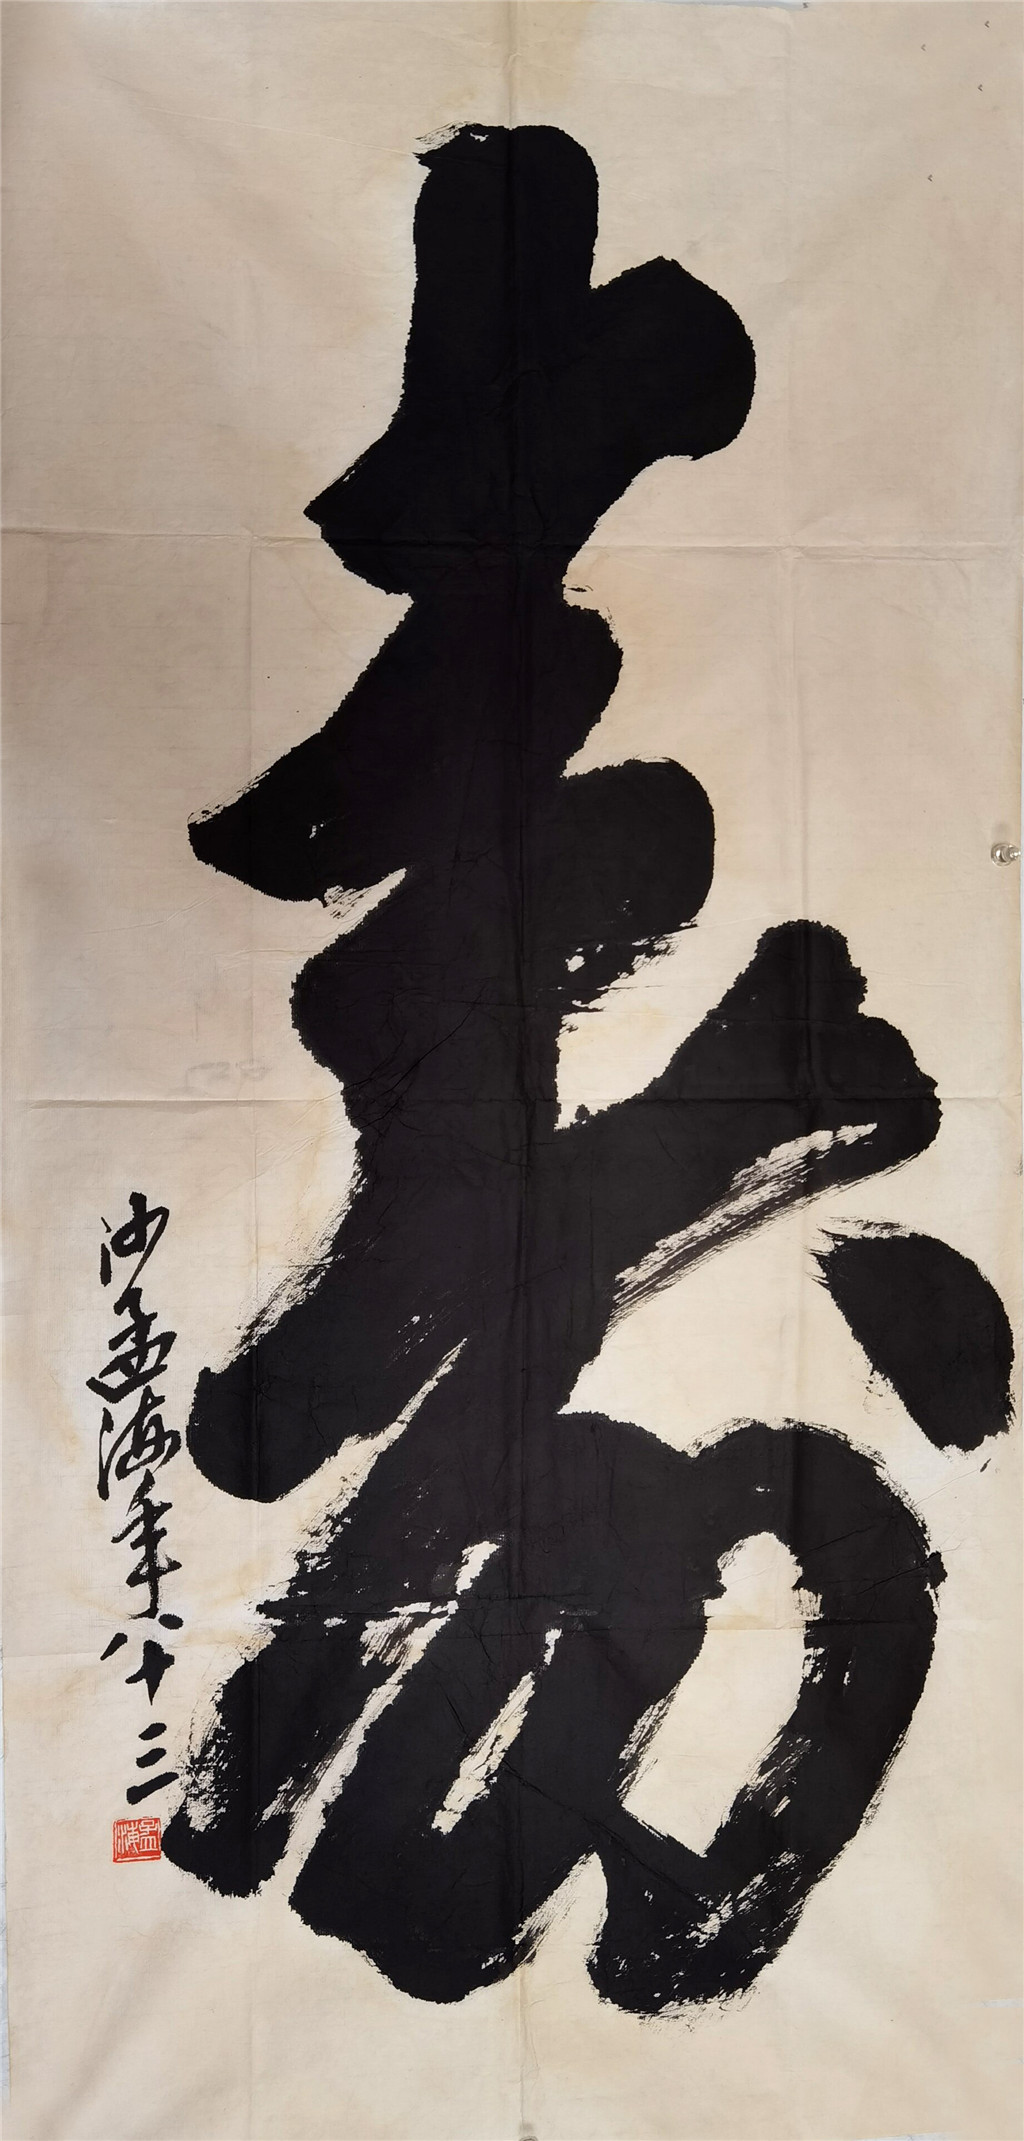 壽
沙孟海年八十三
孟海